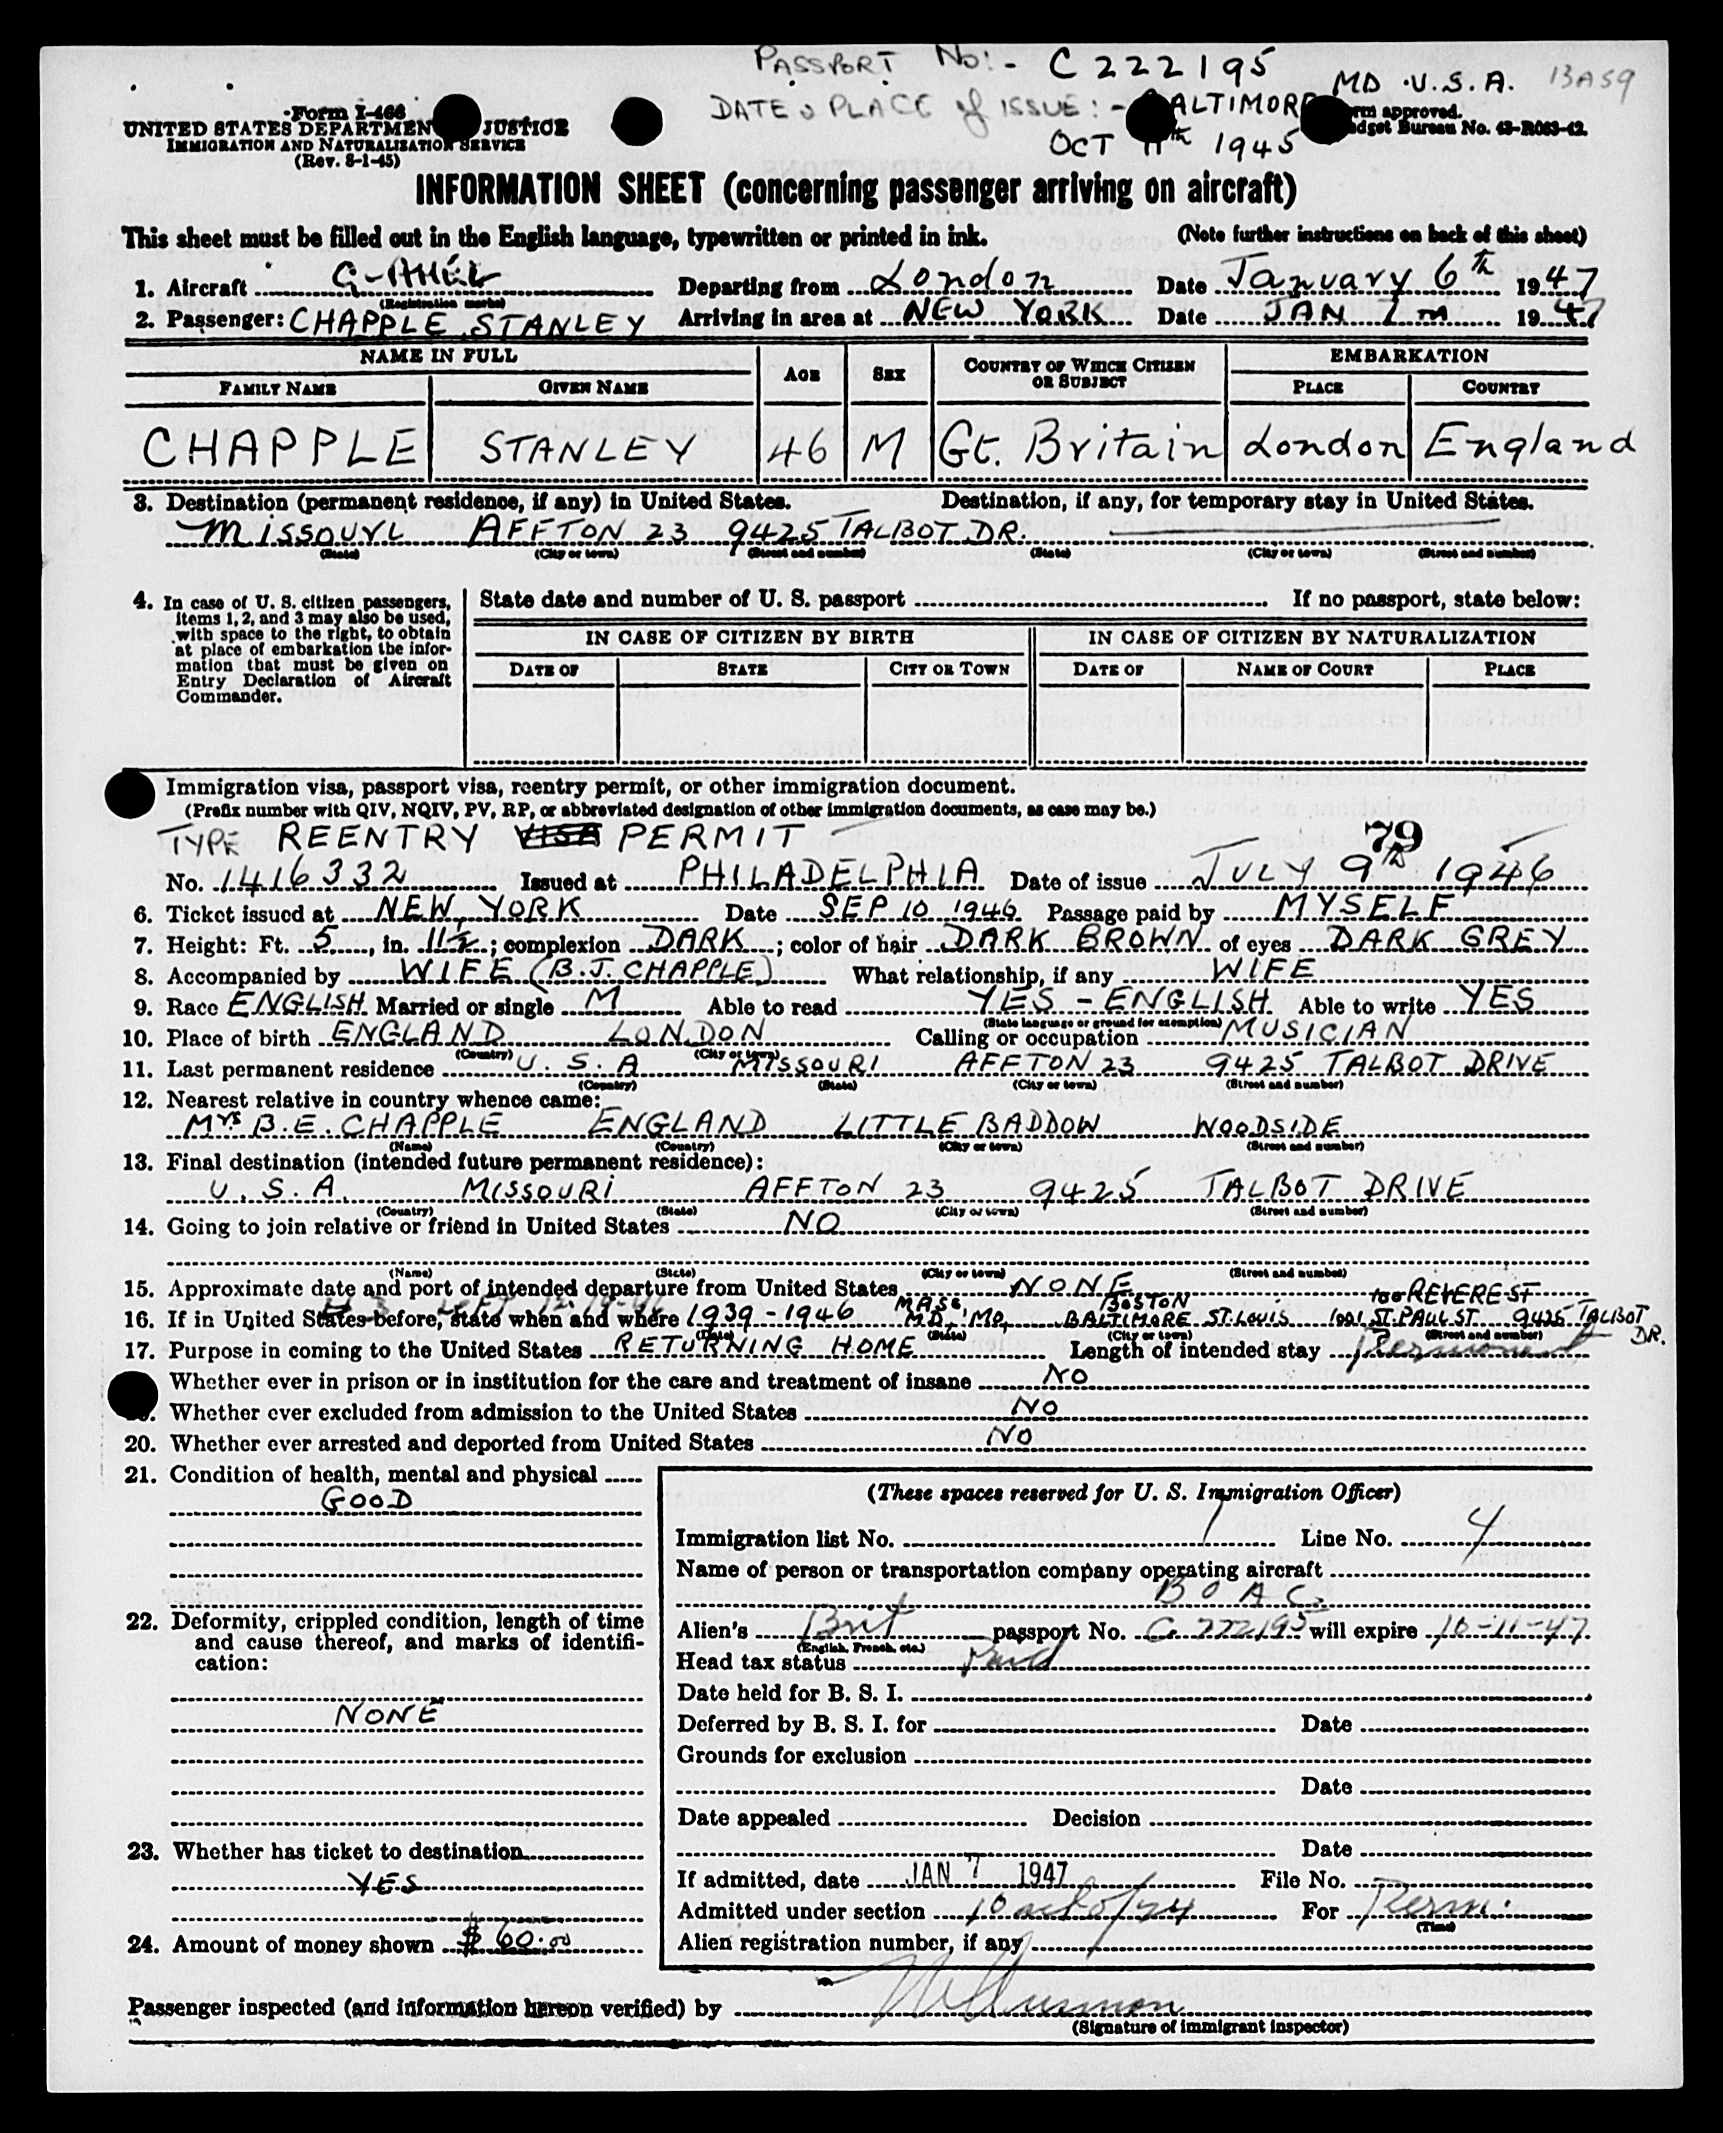 PASSPORT No:- C 222195
DATE & PLACE of ISSUE:- BALTIMORE MD U.S.A. 13A59
OCT 11th 1945
Form I-466
UNITED STATES DEPARTMENT JUSTICE
IMMIGRATION AND NATURALIZATION SERVICE
(Rev. 8-1-45)
Form approved.
Budget Bureau No. 43-R063-42.
INFORMATION SHEET (concerning passenger arriving on aircraft)
This sheet must be filled out in the English language, typewritten or printed in ink. (Note further instructions on back of this sheet)
1. Aircraft G-AHEL Departing from London Date January 6th 1947
(Registration marks)
2. Passenger: CHAPPLE STANLEY Arriving in area at NEW YORK Date JAN 7 1947
NAME IN FULL AGE SEX COUNTRY OF WHICH CITIZEN OR SUBJECT EMBARKATION
FAMILY NAME GIVEN NAME PLACE COUNTRY
CHAPPLE STANLEY 46 M Gt. Britain London England
3. Destination (permanent residence, if any) in United States. Destination, if any, for temporary stay in United States.
MISSOURI AFFTON 23 9425 TALBOT DR.
(State) (City or town) (Street and number) (State) (City or town) (Street and number)
4. In case of U. S. citizen passengers, items 1, 2, and 3 may also be used, with space to the right, to obtain at place of embarkation the information that must be given on Entry Declaration of Aircraft Commander.
State date and number of U. S. passport If no passport, state below:
IN CASE OF CITIZEN BY BIRTH IN CASE OF CITIZEN BY NATURALIZATION
DATE OF STATE CITY OR TOWN DATE OF NAME OF COURT PLACE
Immigration visa, passport visa, reentry permit, or other immigration document.
(Prefix number with QIV, NQIV, PV, RP, or abbreviated designation of other immigration documents, as case may be.)
TYPE REENTRY VISA PERMIT 79
No. 1416332 Issued at PHILADELPHIA Date of issue JULY 9th 1946
6. Ticket issued at NEW YORK Date SEP 10 1946 Passage paid by MYSELF
7. Height: Ft. 5, in. 11½; complexion DARK; color of hair DARK BROWN of eyes DARK GREY
8. Accompanied by WIFE (B.J. CHAPPLE) What relationship, if any WIFE
9. Race ENGLISH Married or single M Able to read YES - ENGLISH Able to write YES
(State language or ground for exemption)
10. Place of birth ENGLAND LONDON Calling or occupation MUSICIAN
(Country) (City or town)
11. Last permanent residence U.S.A MISSOURI AFFTON 23 9425 TALBOT DRIVE
(Country) (State) (City or town) (Street and number)
12. Nearest relative in country whence came:
Mrs B.E. CHAPPLE ENGLAND LITTLE BADDOW WOODSIDE
(Name) (Country) (City or town) (Street and number)
13. Final destination (intended future permanent residence):
U.S.A. MISSOURI AFFTON 23 9425 TALBOT DRIVE
(Country) (State) (City or town) (Street and number)
14. Going to join relative or friend in United States NO
(Name) (State) (City or town) (Street and number)
15. Approximate date and port of intended departure from United States NONE
left 12-19-46 MASS. BOSTON 100 REVERE ST
16. If in United States before, state when and where 1939-1946 MD, MO, BALTIMORE ST. LOUIS 1001 ST. PAUL ST 9425 TALBOT DR.
(Date) (State) (City or town) (Street and number)
17. Purpose in coming to the United States RETURNING HOME Length of intended stay Permanent
Whether ever in prison or in institution for the care and treatment of insane NO
Whether ever excluded from admission to the United States NO
20. Whether ever arrested and deported from United States NO
21. Condition of health, mental and physical
GOOD
22. Deformity, crippled condition, length of time and cause thereof, and marks of identification:
NONE
23. Whether has ticket to destination
YES
24. Amount of money shown $60.00
(These spaces reserved for U. S. Immigration Officer)
Immigration list No. 1 Line No. 4
Name of person or transportation company operating aircraft
B O A C.
Alien's Brit passport No. C 222195 will expire 10-11-47
(English, French, etc.)
Head tax status Paid
Date held for B. S. I.
Deferred by B. S. I. for Date
Grounds for exclusion
Date
Date appealed Decision
Date
If admitted, date JAN 7 1947 File No.
Admitted under section 10 act of 24 For Perm.
(Time)
Alien registration number, if any
Passenger inspected (and information hereon verified) by
(Signature of immigrant inspector)